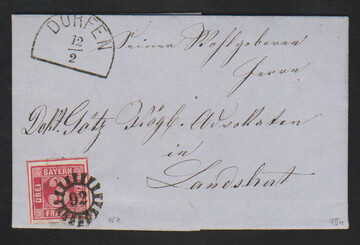 DORFEN
12
2
Seiner Wohlgeboren
Herrn
Dokt. Götz Kögl. Advokaten
in
Landshut
BAYERN
DREI
92